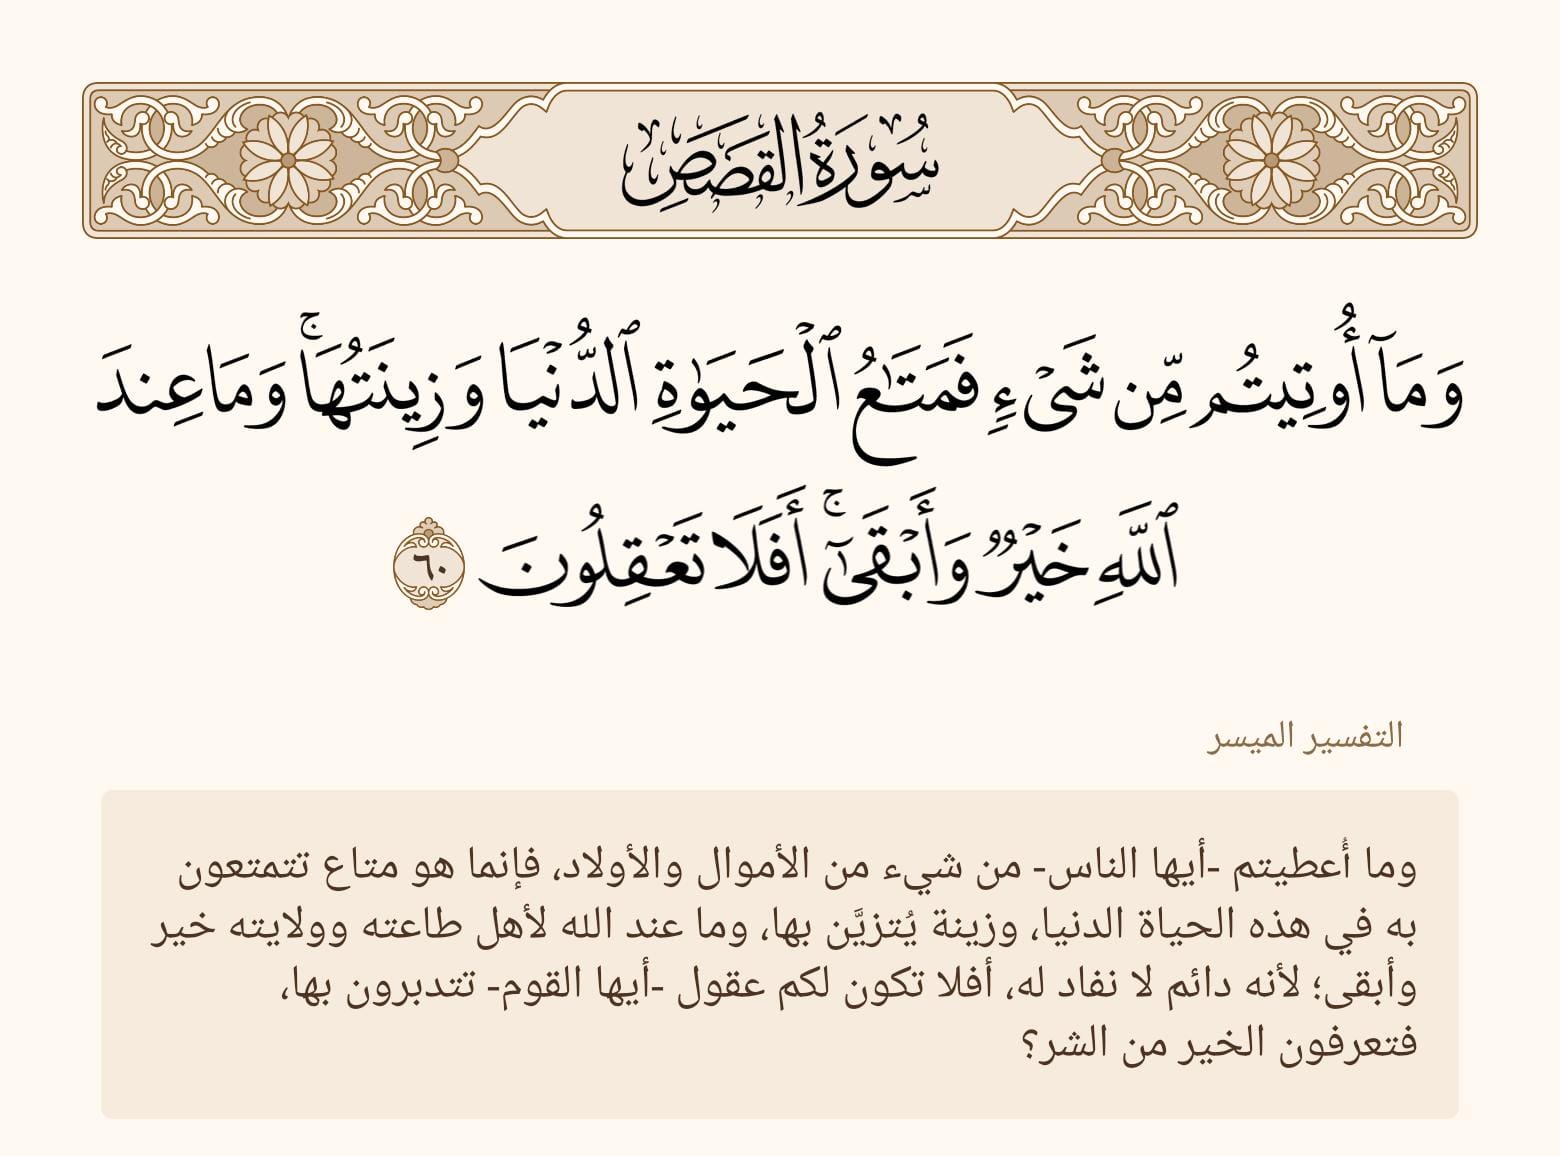 سُورَةُ القَصَصِ
وَمَآ أُوتِيتُم مِّن شَىْءٍ فَمَتَٰعُ ٱلْحَيَوٰةِ ٱلدُّنْيَا وَزِينَتُهَا ۚ وَمَا عِندَ
ٱللَّهِ خَيْرٌ وَأَبْقَىٰٓ ۚ أَفَلَا تَعْقِلُونَ ٦٠
التفسير الميسر
وما أُعطيتم -أيها الناس- من شيء من الأموال والأولاد، فإنما هو متاع تتمتعون
به في هذه الحياة الدنيا، وزينة يُتزيَّن بها، وما عند الله لأهل طاعته وولايته خير
وأبقى؛ لأنه دائم لا نفاد له، أفلا تكون لكم عقول -أيها القوم- تتدبرون بها،
فتعرفون الخير من الشر؟